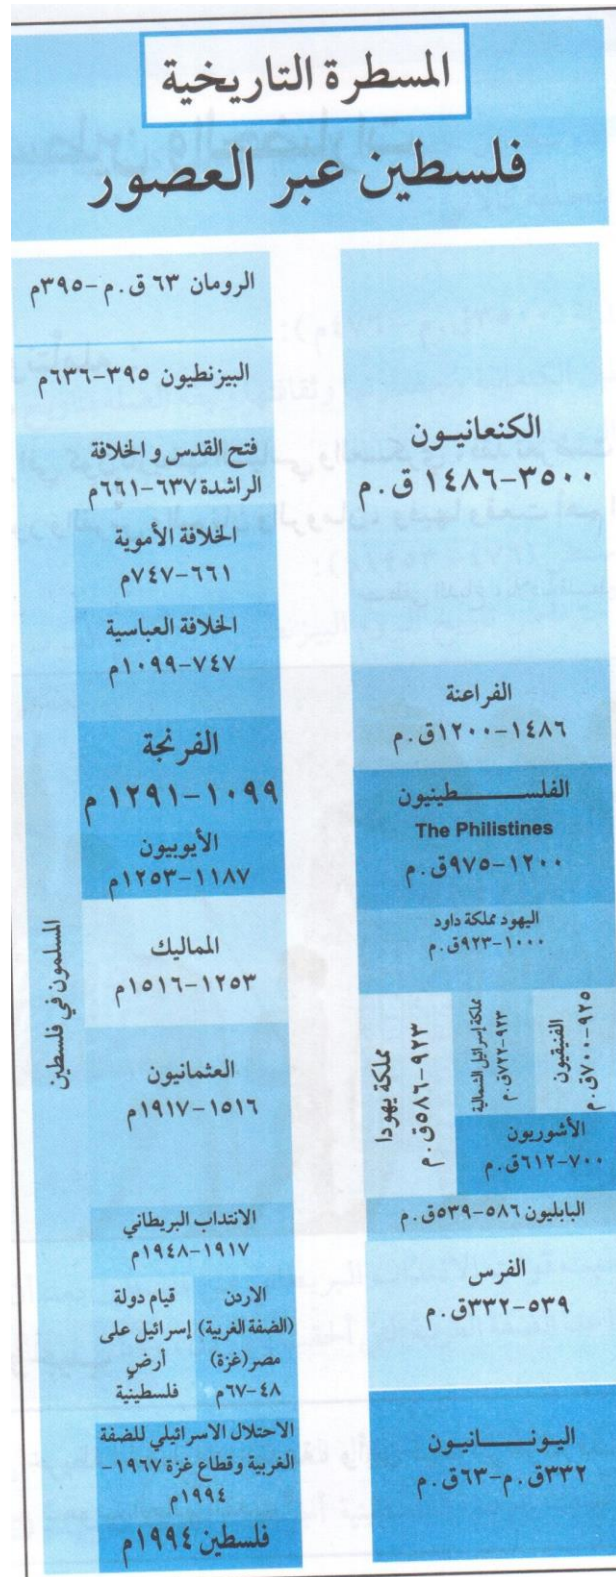 المسطرة التاريخية
فلسطين عبر العصور
الكنعانيـون
٣٥٠٠-١٤٨٦ ق.م
الفراعنة
١٤٨٦-١٢٠٠ق.م
الفلســـطينيون
The Philistines
١٢٠٠-٩٧٥ق.م
اليهود مملكة داود
١٠٠٠-٩٢٣ق.م
الفنيقيون
٩٢٥-٧٠٠ق.م
مملكة إسرائيل الشمالية
٩٢٣-٧٢٢ق.م
مملكة يهودا
٩٢٣-٥٨٦ق.م
الأشوريون
٧٠٠-٦١٢ق.م
البابليون ٥٨٦-٥٣٩ق.م
الفرس
٥٣٩-٣٣٢ق.م
اليونـــانيون
٣٣٢ق.م-٦٣ق.م
الرومان ٦٣ ق.م-٣٩٥م
البيزنطيون ٣٩٥-٦٣٦م
المسلمون في فلسطين
فتح القدس و الخلافة
الراشدة ٦٣٧-٦٦١م
الخلافة الأموية
٦٦١-٧٤٧م
الخلافة العباسية
٧٤٧-١٠٩٩م
الفرنجة
١٠٩٩-١٢٩١ م
الأيوبيون
١١٨٧-١٢٥٣م
المماليك
١٢٥٣-١٥١٦م
العثمانيون
١٥١٦-١٩١٧م
الانتداب البريطاني
١٩١٧-١٩٤٨م
الاردن
(الضفة الغربية)
مصر(غزة)
٤٨-٦٧م
قيام دولة
إسرائيل على
أرضٍ
فلسطينية
الاحتلال الاسرائيلي للضفة
الغربية وقطاع غزة ١٩٦٧-
١٩٩٤م
فلسطين ١٩٩٤م